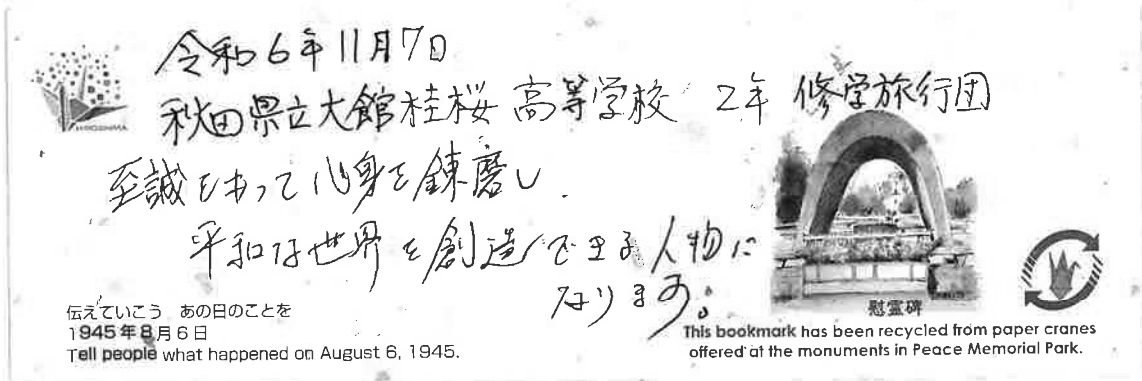 令和6年11月7日
秋田県立大館桂桜高等学校 2年 修学旅行団
至誠をもって心身を錬磨し、
平和な世界を創造できる人物に
なります。
HIROSHIMA
伝えていこう あの日のことを
1945年8月6日
Tell people what happened on August 6, 1945.
慰霊碑
This bookmark has been recycled from paper cranes
offered at the monuments in Peace Memorial Park.